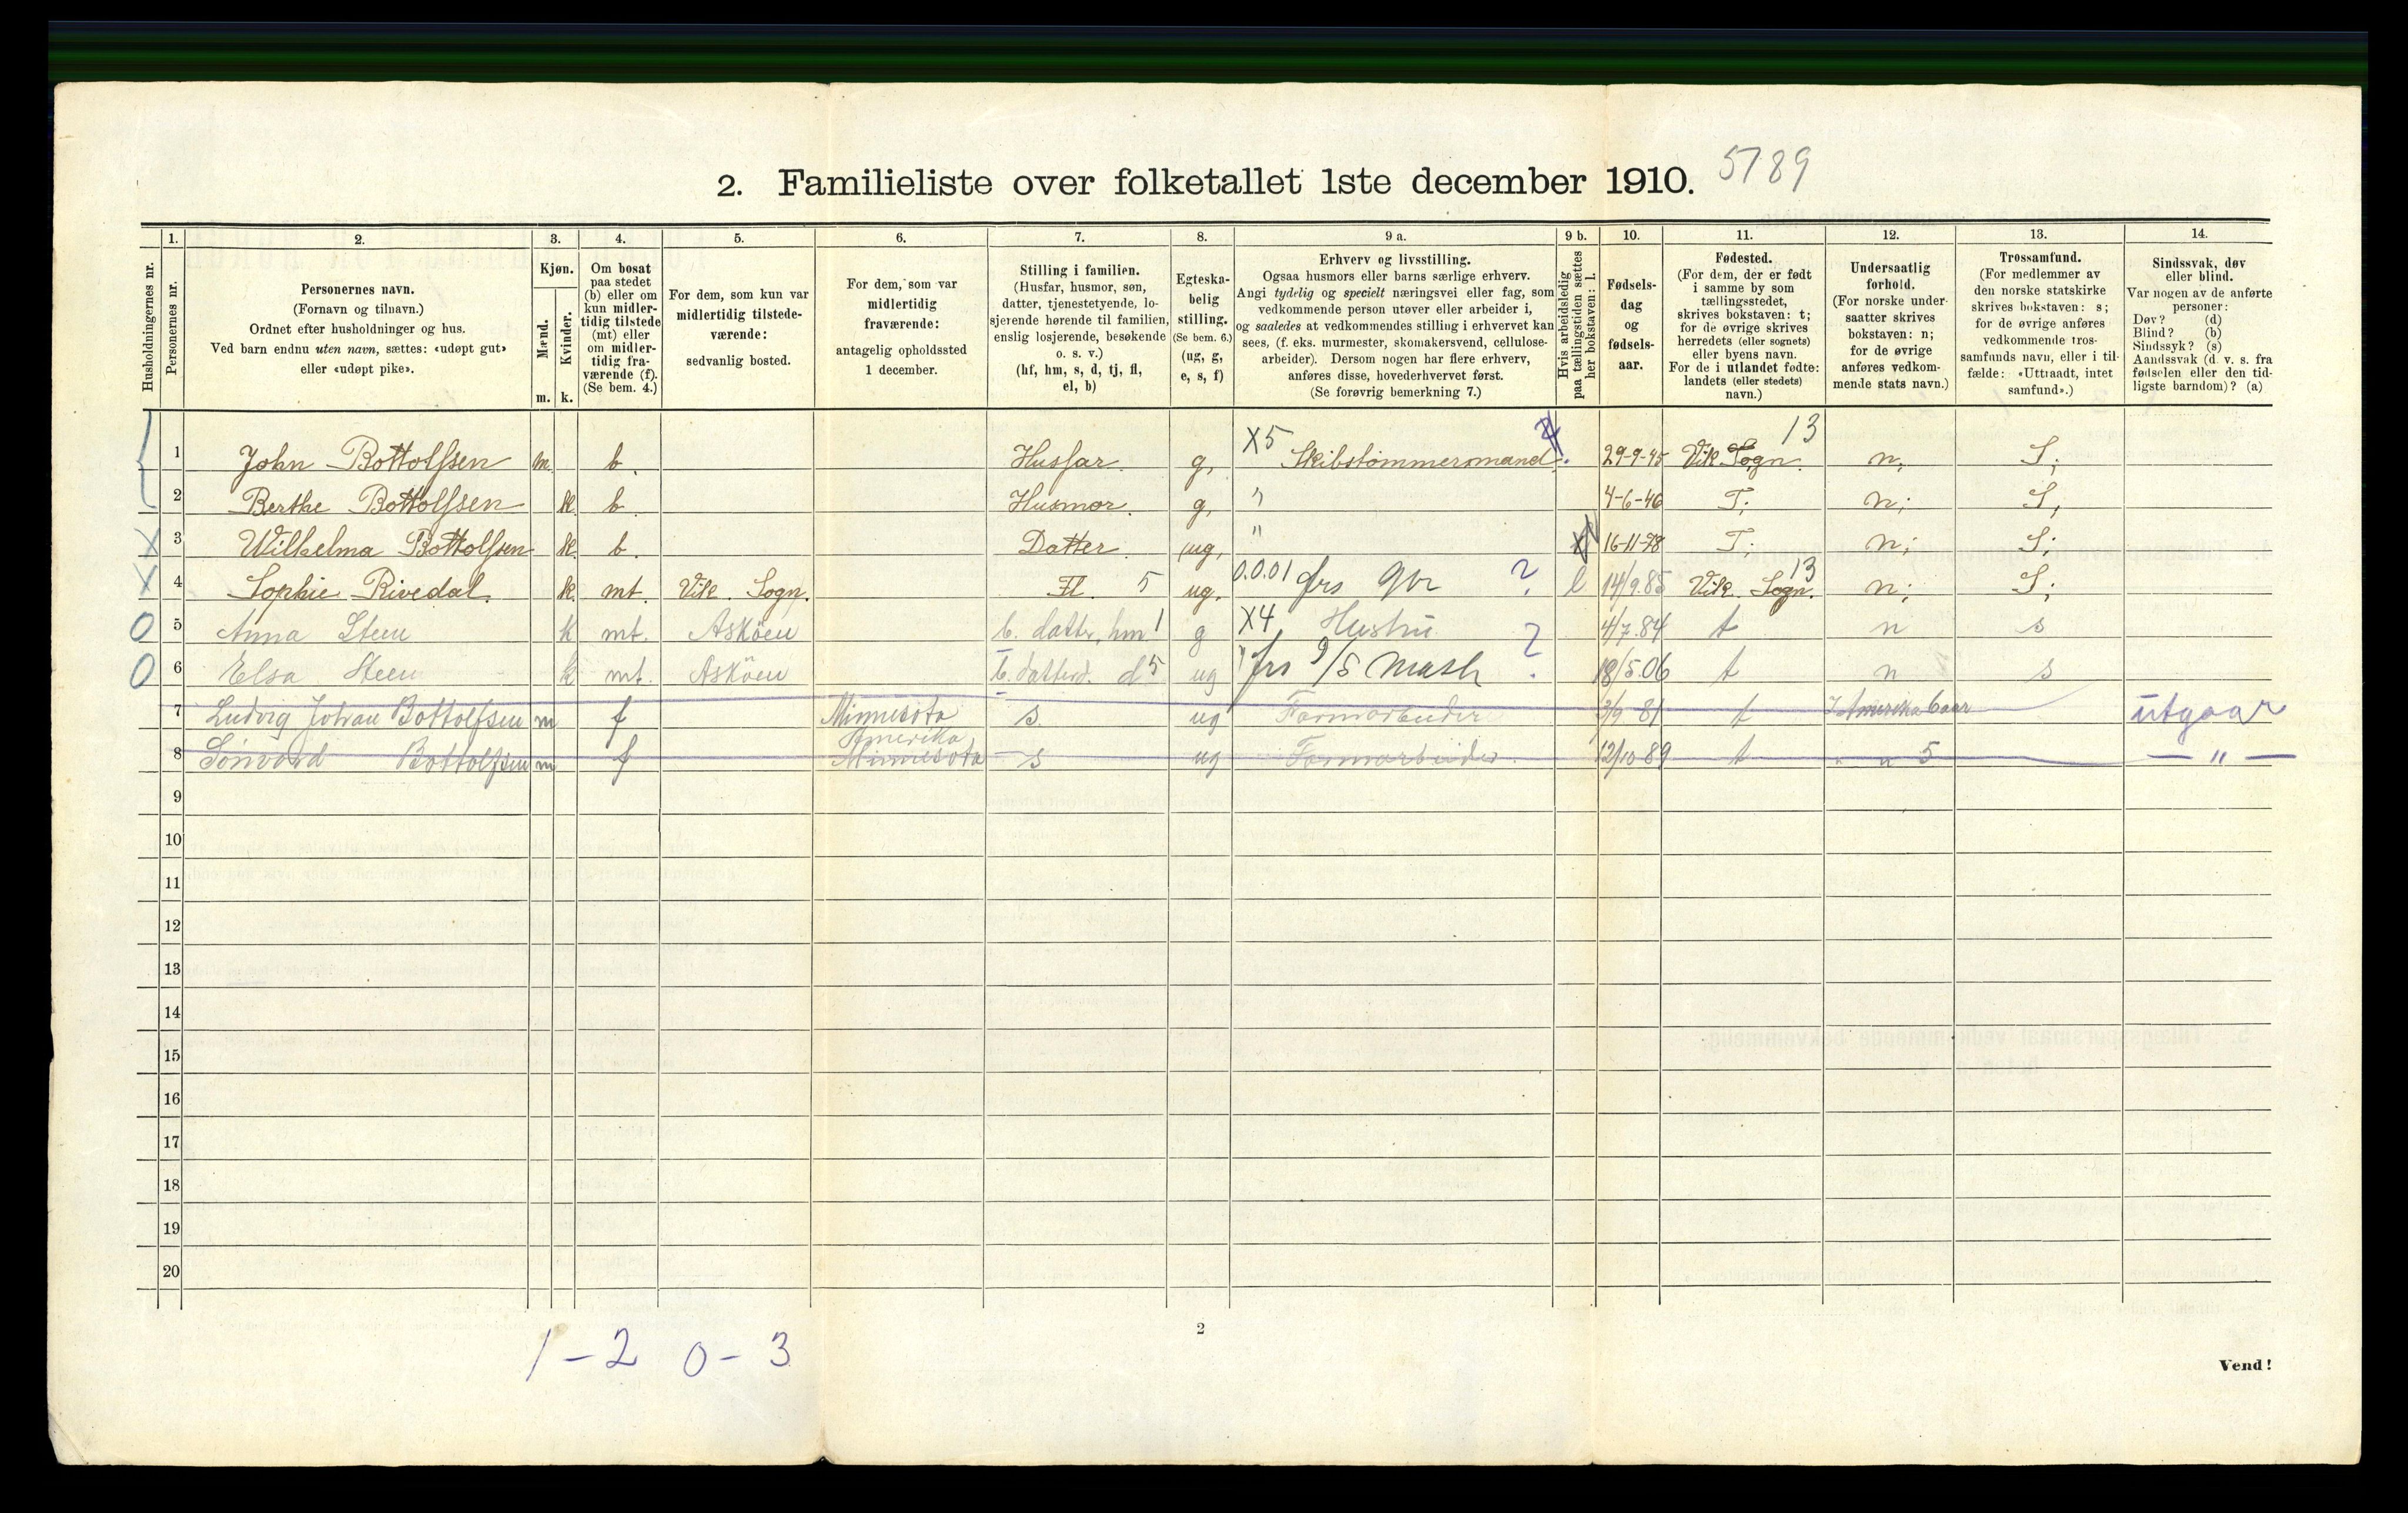 2. Familieliste over folketallet 1ste december 1910. 5789
Husholdningernes nr.
1. Personernes nr.
2. Personernes navn.
(Fornavn og tilnavn.)
Ordnet efter husholdninger og hus.
Ved barn endnu uten navn, sættes: «udøpt gut»
eller «udøpt pike».
3. Kjøn.
Mænd. m.
Kvinder. k.
4. Om bosat
paa stedet
(b) eller om
kun midler-
tidig tilstede
(mt) eller
om midler-
tidig fra-
værende (f).
(Se bem. 4.)
5. For dem, som kun var
midlertidig tilstede-
værende:
sedvanlig bosted.
6. For dem, som var
midlertidig
fraværende:
antagelig opholdssted
1 december.
7. Stilling i familien.
(Husfar, husmor, søn,
datter, tjenestetyende, lo-
sjerende hørende til familien,
enslig losjerende, besøkende
o. s. v.)
(hf, hm, s, d, tj, fl,
el, b)
8. Egteska-
belig
stilling.
(Se bem. 6.)
(ug, g,
e, s, f)
9 a. Erhverv og livsstilling.
Ogsaa husmors eller barns særlige erhverv.
Angi tydelig og specielt næringsvei eller fag, som
vedkommende person utøver eller arbeider i,
og saaledes at vedkommendes stilling i erhvervet kan
sees, (f. eks. murmester, skomakersvend, cellulose-
arbeider). Dersom nogen har flere erhverv,
anføres disse, hovederhvervet først.
(Se forøvrig bemerkning 7.)
9 b. Hvis arbeidsledig
paa tællingstiden sættes
her bokstaven: l.
10. Fødsels-
dag
og
fødsels-
aar.
11. Fødested.
(For dem, der er født
i samme by som
tællingsstedet,
skrives bokstaven: t;
for de øvrige skrives
herredets (eller sognets)
eller byens navn.
For de i utlandet fødte:
landets (eller stedets)
navn.)
12. Undersaatlig
forhold.
(For norske under-
saatter skrives
bokstaven: n;
for de øvrige
anføres vedkom-
mende stats navn.)
13. Trossamfund.
(For medlemmer av
den norske statskirke
skrives bokstaven: s;
for de øvrige anføres
vedkommende tros-
samfunds navn, eller i til-
fælde: «Uttraadt, intet
samfund».)
14. Sindssvak, døv
eller blind.
Var nogen av de anførte
personer:
Døv? (d)
Blind? (b)
Sindssyk? (s)
Aandssvak (d. v. s. fra
fødselen eller den tid-
ligste barndom)? (a)
1 John Bottolfsen m. b. Husfar. g, X5 Skibstømmermand. 29-9-45 Vik Sogn. 13 n; S;
2 Berthe Bottolfsen k. b. Husmor. g, " 4-6-46 T; n; S;
X 3 Wilhelma Bottolfsen k. b. Datter. ug, " 16-11-78 T; n; S;
X 4 Sophie Rivedal. k. mt. Vik. Sogn. Fl. 5 ug. 0.0.01 frs gbr ? l 14/9.85 Vik. Sogn. 13 n; S;
0 5 Anna Steen k mt. Askøen b. datter, hm 1 g X4 Hustru ? 4/7.84 t n s
0 6 Elsa Steen k mt. Askøen b. datterd. d 5 ug " frs 9/5 mask 18/5.06 t n s
7 Ludvig Johan Bottolfsen m f Minnesota Amerika s. ug Farmarbeider 3/9 81 t I Amerika 6 aar utgaar
8 Sønvard Bottolfsen m f Minnesota s ug Farmarbeider. 12/10 89 t " " 5 — " —
9
10
11
12
13
14
15
16
17
18
19
20
1 - 2 0 - 3
2
Vend!